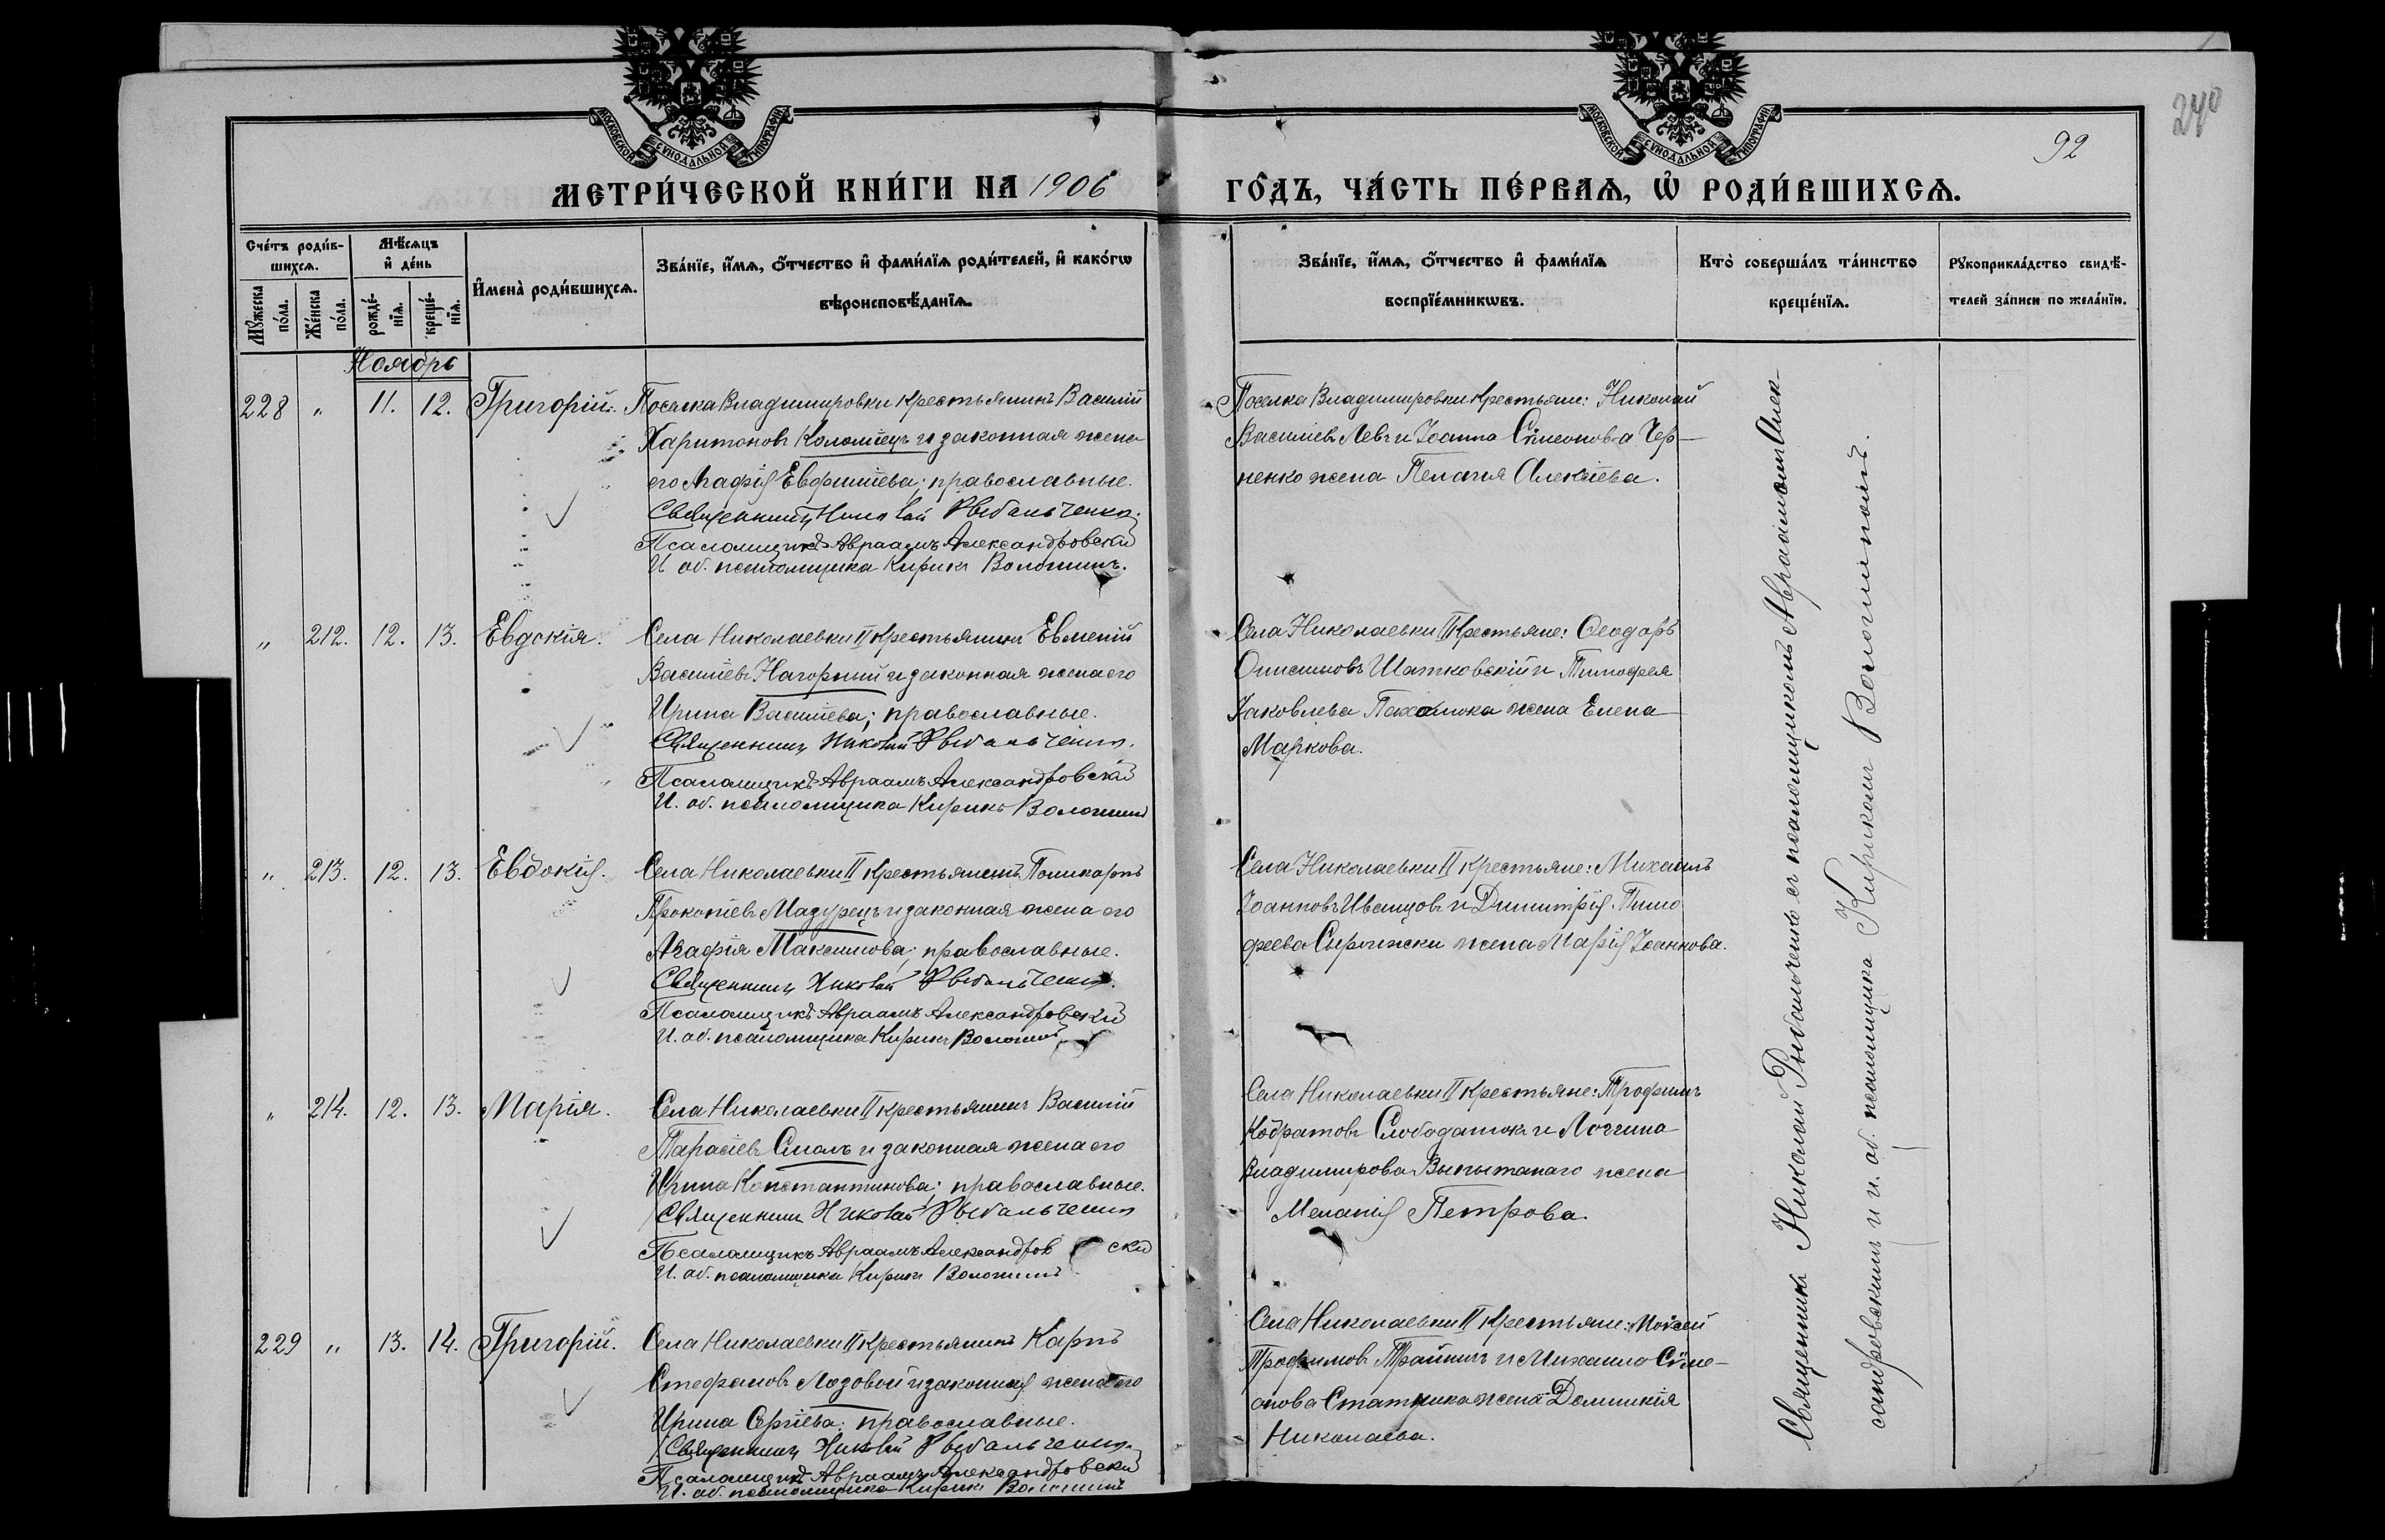 240
92
МОСКОВСКОЙ СѴНОДАЛЬНОЙ ТИПОГРАФІИ
МОСКОВСКОЙ СѴНОДАЛЬНОЙ ТИПОГРАФІИ
МЕТРИ́ЧЕСКОЙ КНИ́ГИ НА 1906
ГО́ДЪ, ЧА́СТЬ ПЕ́РВАѦ, Ѡ РОДИ́ВШИХСѦ.
Сче́тъ роди́в-
шихсѧ.
Мѹ́жеска по́ла.
Же́нска по́ла.
Мѣ́сѧцъ
и де́нь
рожде́-
нїѧ.
креще́-
нїѧ.
Имена̀ роди́вшихсѧ.
Зва́нїе, и́мѧ, ѻ́тчество и фами́лїѧ роди́телей, и како́гѡ
вѣроисповѣ́данїѧ.
Зва́нїе, и́мѧ, ѻ́тчество и фами́лїѧ
воспрїе́мникѡвъ.
Кто̀ соверша́лъ та́инство
креще́нїѧ.
Рѹкоприкла́дство свидѣ́-
телей за́писи по жела́нїи.
Ноябрь
228 " 11. 12. Григорій.
Поселка Владимировки крестьянинъ Василій
Харитоновъ Коломіецъ и законная жена
его Агафія Евфиміева; православные.
Священникъ Николай Рыбальченко.
Псаломщикъ Авраамъ Александровскій
И. об. псаломщика Кирикъ Волошинъ.
Поселка Владимировки крестьяне: Николай
Васильевъ Левъ и Іоанна Сѵмеонова Чер-
ненко жена Пелагія Алексіева.
" 212. 12. 13. Евдокія.
Села Николаевки II крестьянинъ Евменій
Василіевъ Нагорный и законная жена его
Ирина Василіева; православные.
Священникъ Николай Рыбальченко.
Псаломщикъ Авраамъ Александровскій
И. об. псаломщика Кирикъ Волошинъ
Села Николаевки II крестьяне: Ѳеодоръ
Онисимовъ Шатковскій и Тимофея
Іаковлева Пахолюка жена Елена
Маркова.
" 213. 12. 13. Евдокія.
Села Николаевки II крестьянинъ Поликарпъ
Прокопіевъ Мазурецъ и законная жена его
Агафія Максимова; православные.
Священникъ Николай Рыбальченко.
Псаломщикъ Авраамъ Александровскій
И. об. псаломщика Кирикъ Волошинъ
Села Николаевки II крестьяне: Михаилъ
Іоанновъ Иванцовъ и Димитрія Тимо
феева жена Марія Іоаннова.
" 214. 12. 13. Марія.
Села Николаевки II крестьянинъ Василій
Тарасіевъ Смаль и законная жена его
Ирина Константинова; православные.
Священникъ Николай Рыбальченко
Псаломщикъ Авраамъ Александровскій
И. об. псаломщика Кирикъ Волошинъ
Села Николаевки II крестьяне: Трофимъ
Кодратовъ Слободянюкъ и Логгина
Владимирова Выпытанаго жена
Меланія Петрова.
229 " 13. 14. Григорій.
Села Николаевки II крестьянинъ Карпъ
Стефановъ Лозовой и законная жена его
Ирина Сергіева; православные.
Священникъ Николай Рыбальченко.
Псаломщикъ Авраамъ Александровскій
И. об. псаломщика Кирикъ Волошинъ
Села Николаевки II крестьяне: Моѵсей
Трофимовъ и Михаила Сѵме-
онова жена Домникія
Николаева.
Священникъ Николай Рыбальченко съ псаломщикомъ Авраамомъ Алек-
сандровскимъ и и. об. псаломщика Кирикомъ Волошинымъ.